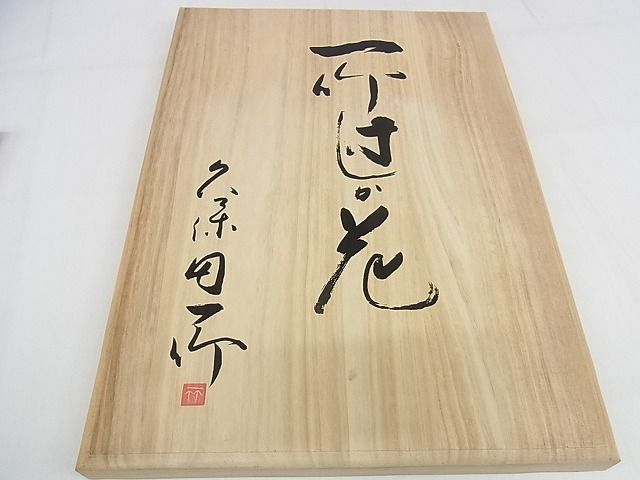 一竹辻か花
久保田一竹
一竹